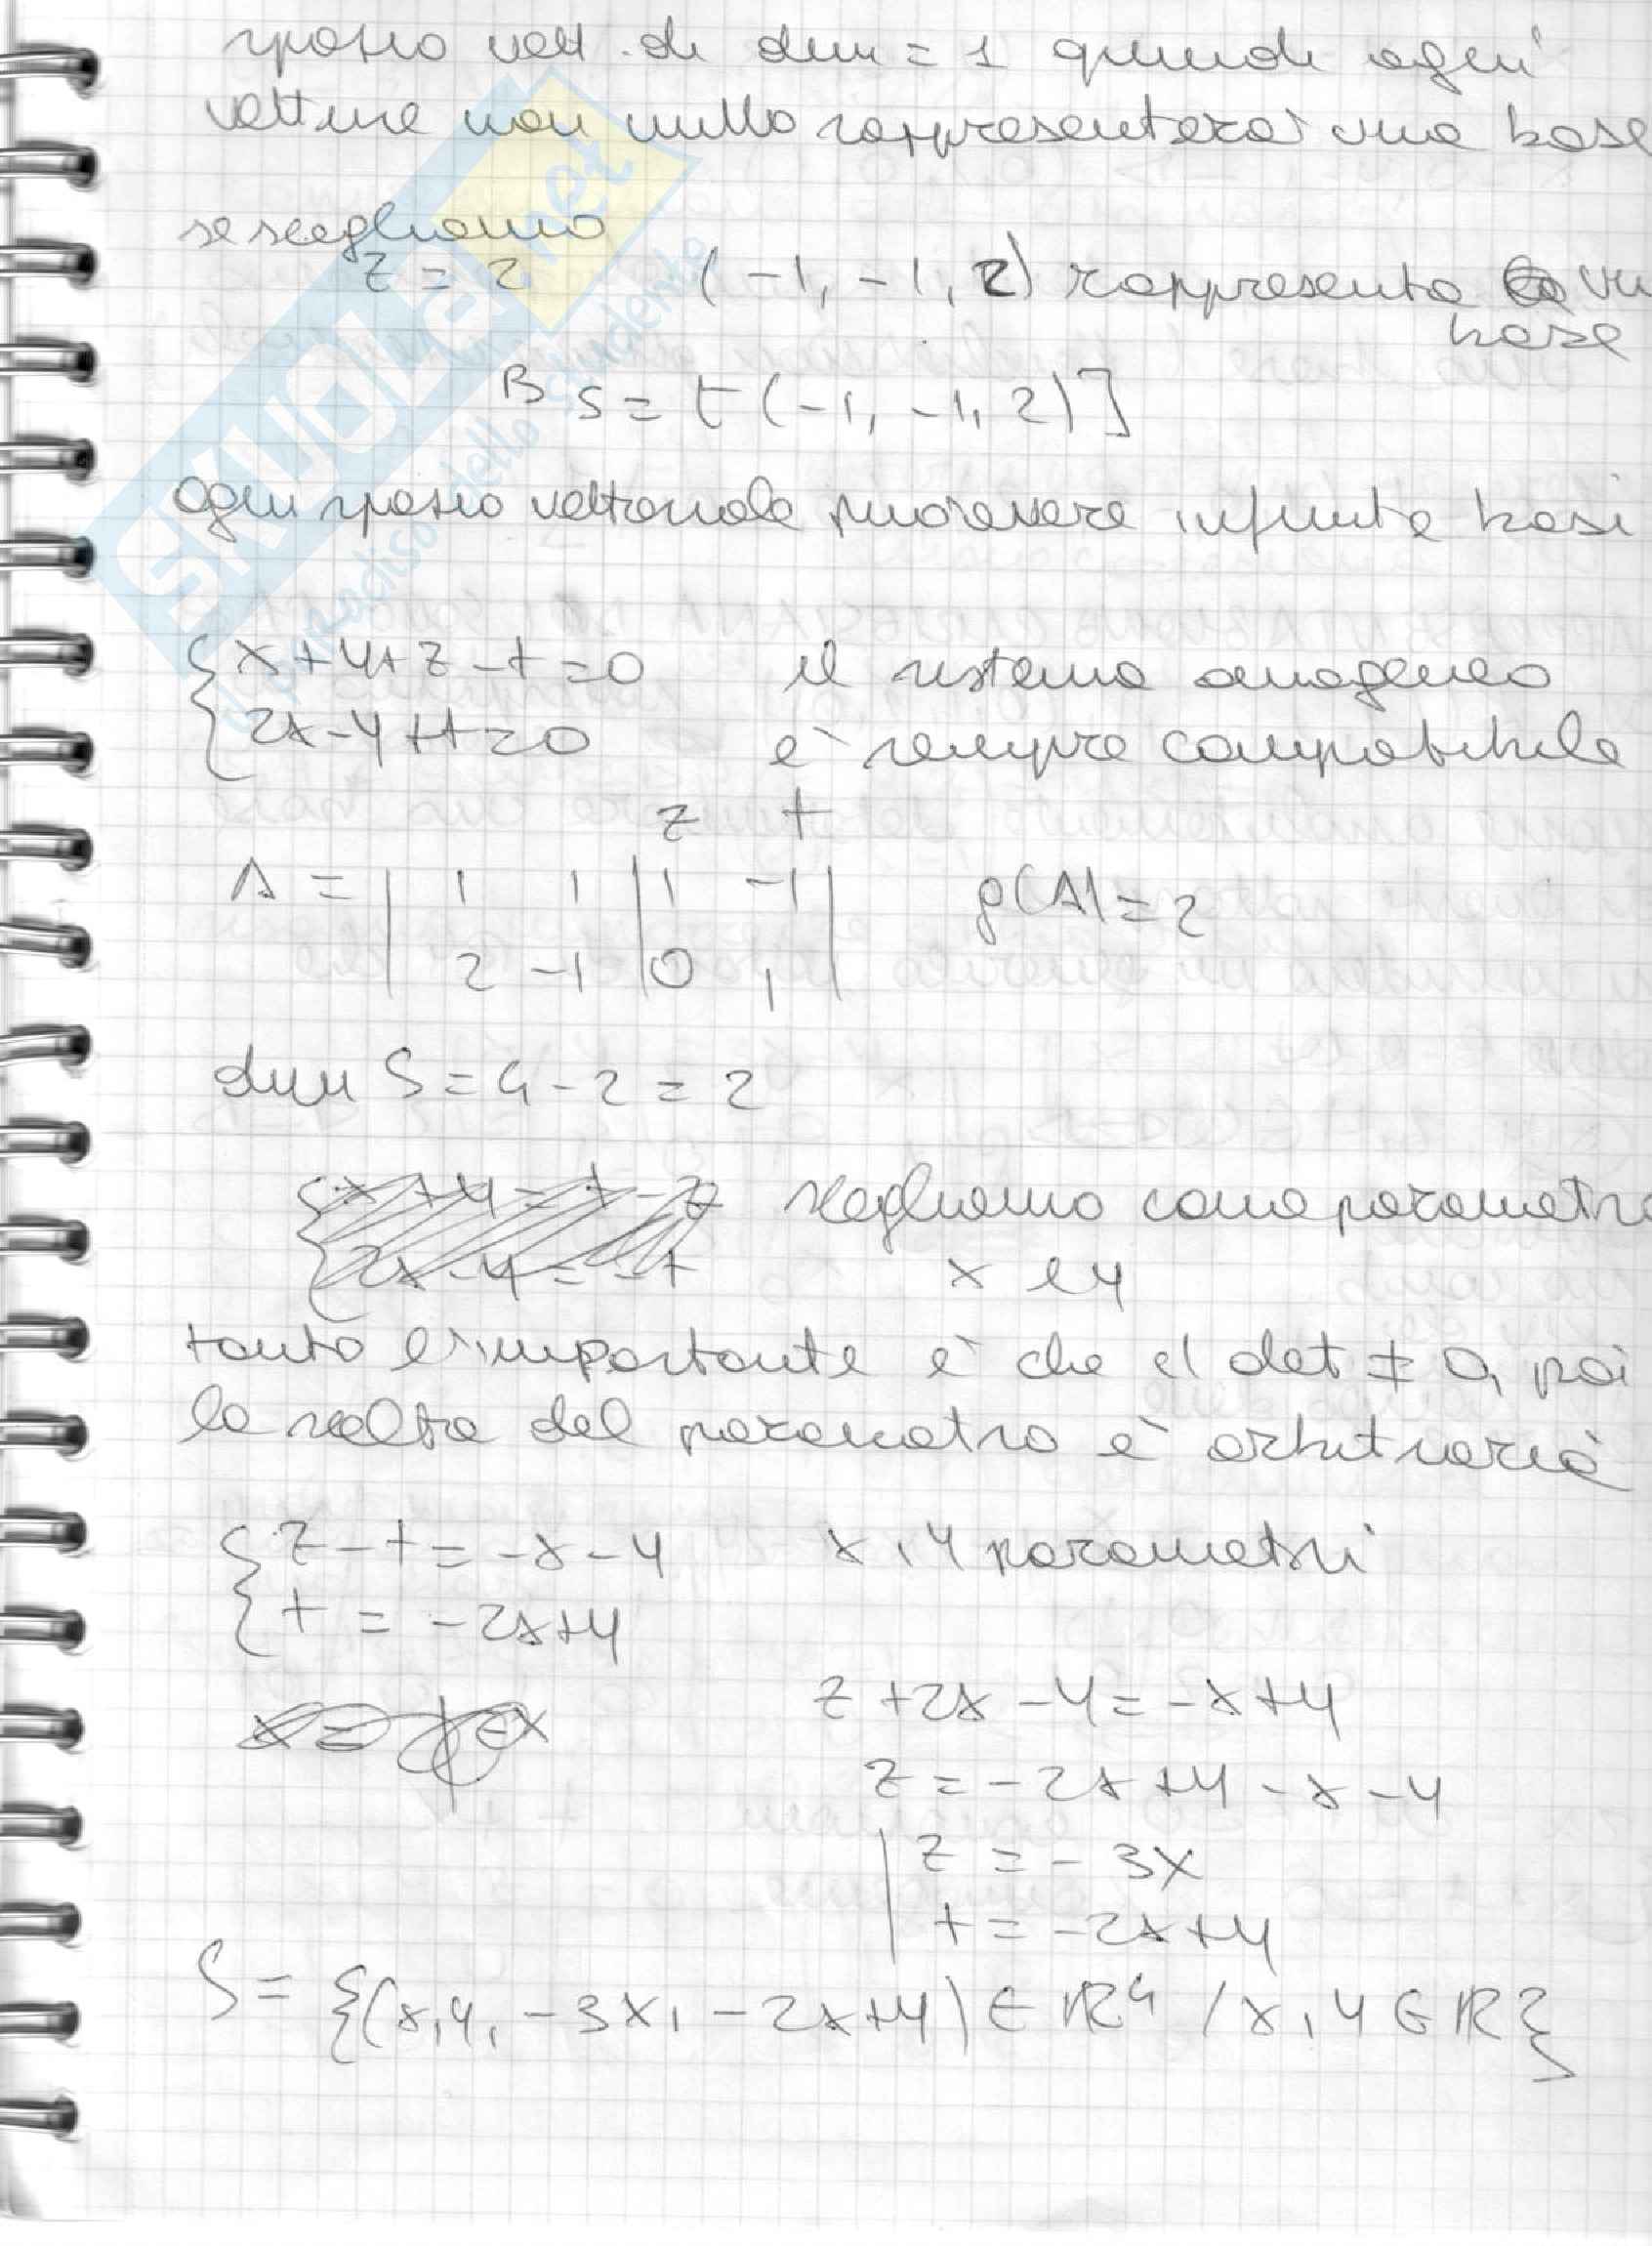 spazio vett. di dim = 1 quindi ogni
vettore non nullo rappresenterà una base
se scegliamo
z = 2 (-1, -1, 2) rappresenta un
base
B S = [(-1, -1, 2)]
ogni spazio vettoriale può avere infinite basi
{ x+y+z-t=0 il sistema omogeneo
2x-y+t=0 è sempre compatibile
z t
A = | 1 1 | 1 -1 | ρ(A)=2
| 2 -1 | 0 1 |
dim S = 4 - 2 = 2
{ x+y = t-z scegliamo come parametro
2x-y = -t x e y
tanto l'importante è che il det ≠ 0, poi
la scelta del parametro è arbitraria
{ z-t = -x-y x, y parametri
t = -2x+y
z+2x-y = -x+y
z = -2x+y-x-y
| z = -3x
| t = -2x+y
S = {(x, y, -3x, -2x+y) ∈ R⁴ / x, y ∈ R}
SKUOLA.net
il paradiso dello studente